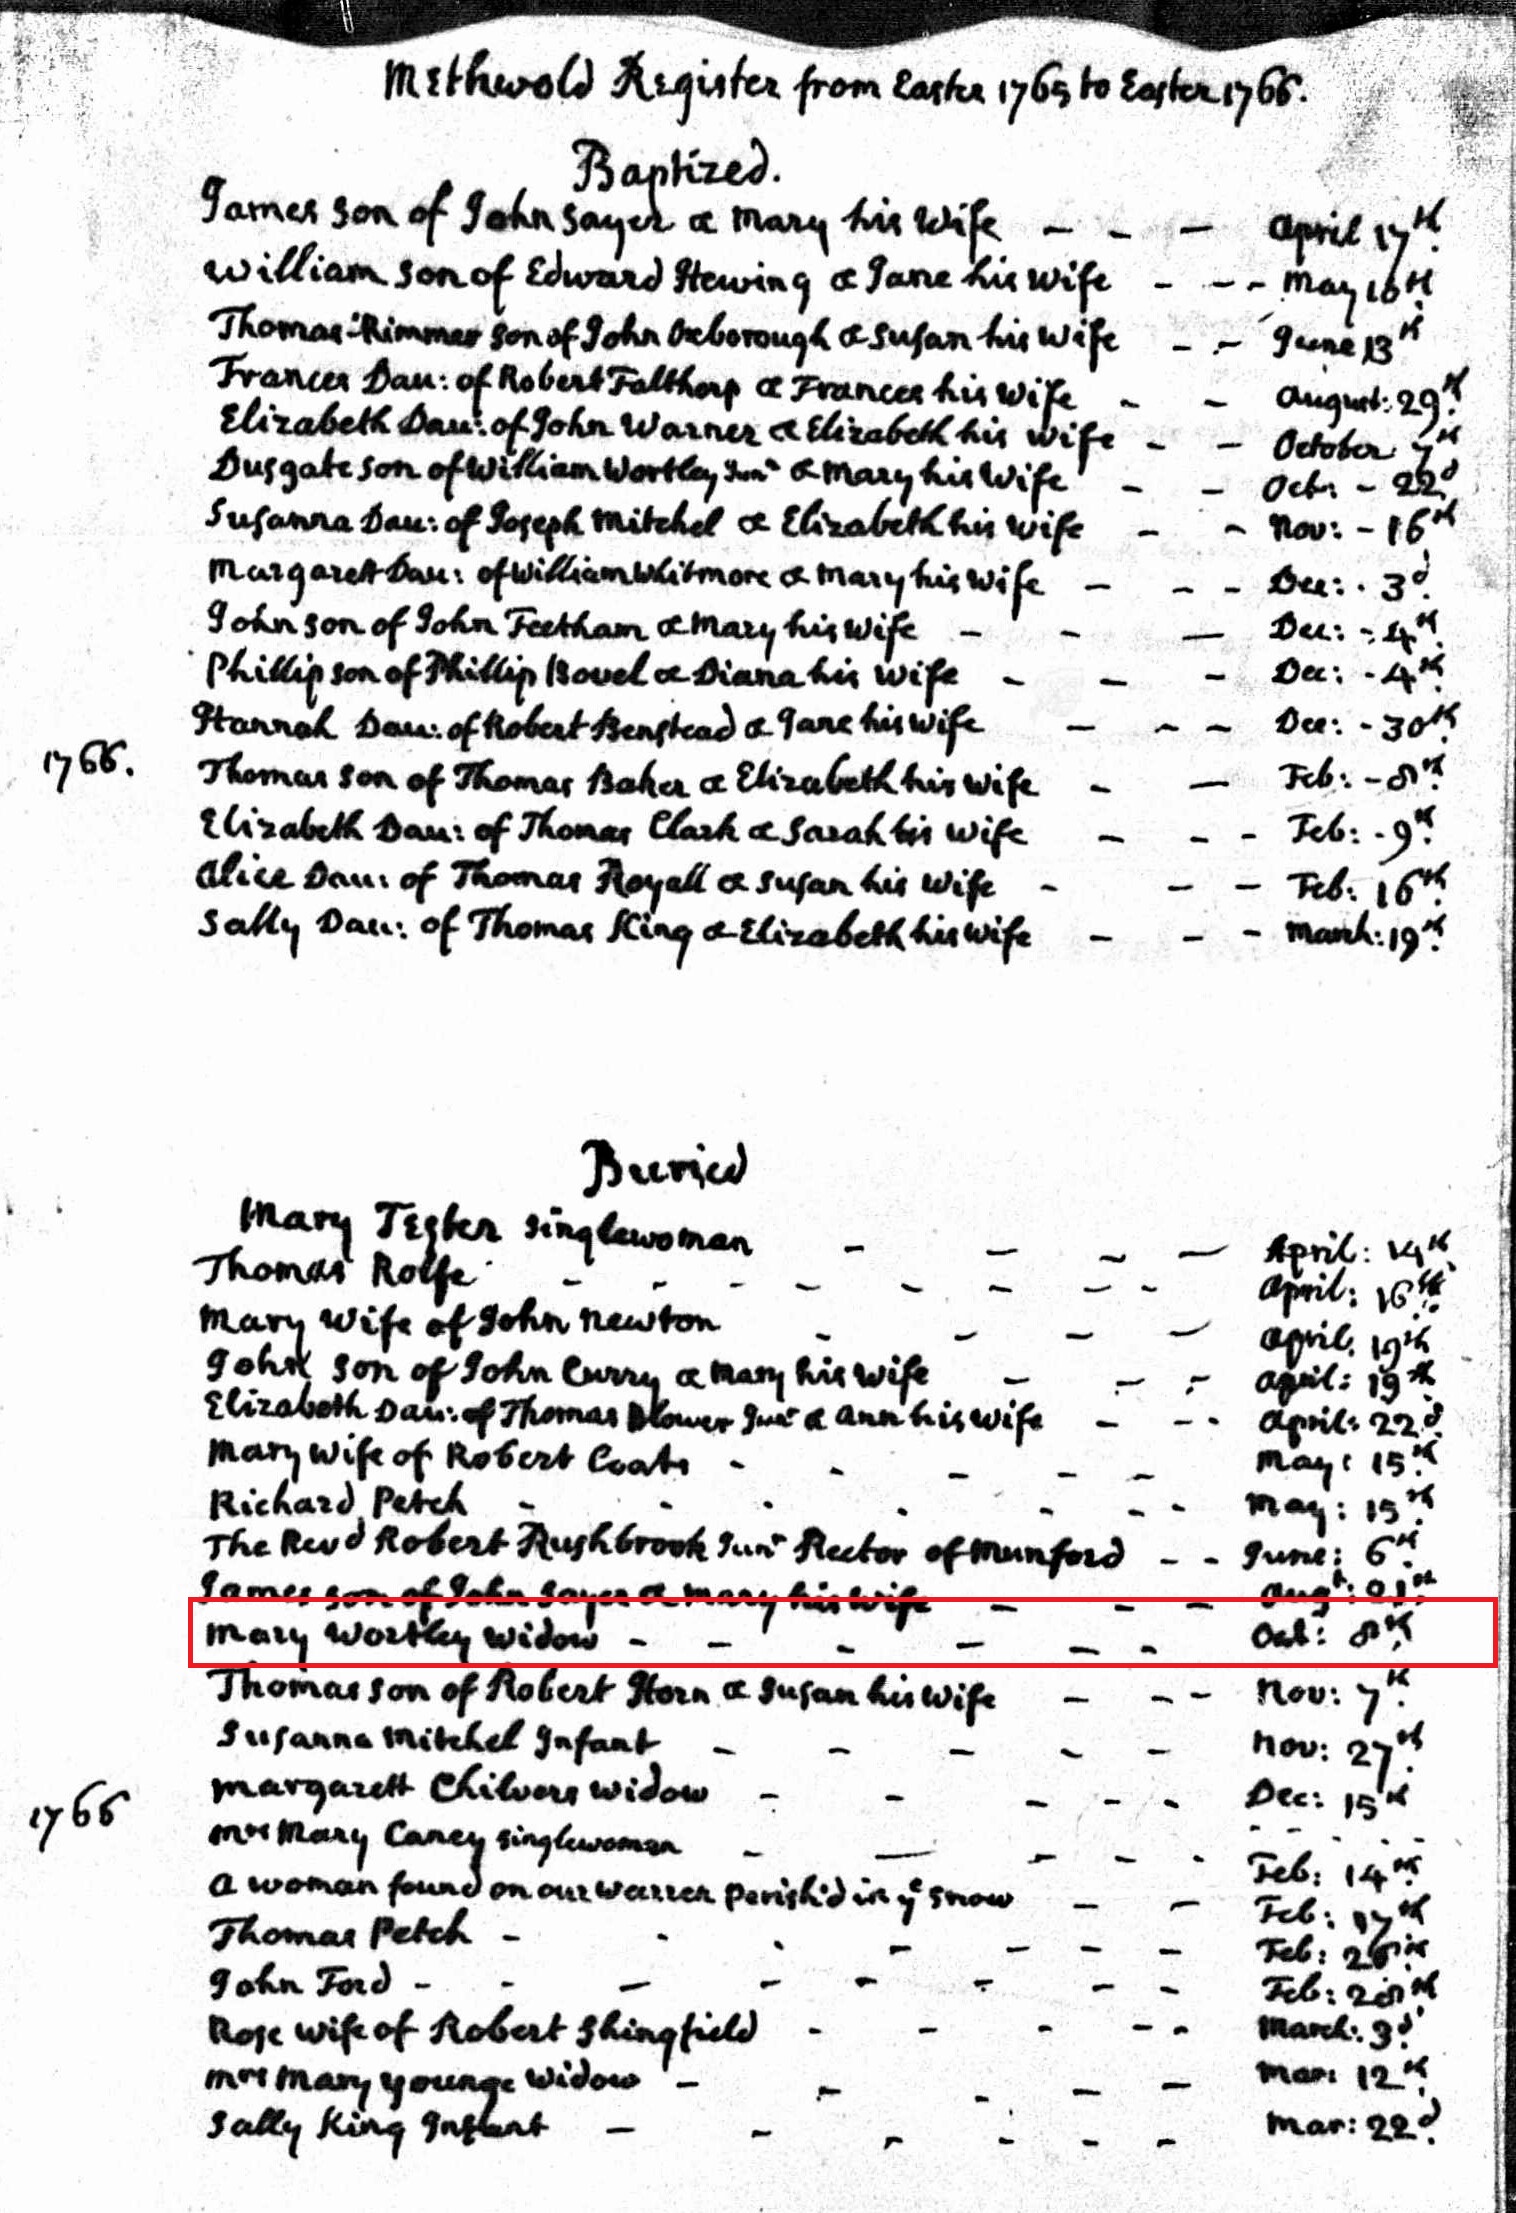 Methwold Register from Easter 1765 to Easter 1766.
Baptized.
James son of John Sayer & Mary his Wife - - - April 17th.
William son of Edward Hewing & Jane his Wife - - - May 16th
Thomas Rimmer son of John Oxborough & Susan his Wife - - June 13th
Frances Dau: of Robert Falthorp & Frances his Wife - - August: 29th.
Elizabeth Dau: of John Warner & Elizabeth his Wife - - October 7th
Dusgate son of William Wortley Junr & Mary his Wife - - Octr: - 22d
Susanna Dau: of Joseph Mitchel & Elizabeth his Wife - - Nov: - 16th
Margarett Dau: of William Whitmore & Mary his Wife - - - Dec: - 3d.
John son of John Feetham & Mary his Wife - - - Dec: - 4th.
Phillip son of Phillip Bovel & Diana his Wife - - - Dec: - 4th.
Hannah Dau: of Robert Benstead & Jane his Wife - - - Dec: - 30th.
1766. Thomas son of Thomas Baker & Elizabeth his Wife - - Feb: - 8th.
Elizabeth Dau: of Thomas Clark & Sarah his Wife - - - Feb: - 9th.
Alice Dau: of Thomas Royall & Susan his Wife - - - Feb: 16th.
Sally Dau: of Thomas King & Elizabeth his Wife - - - March: 19th.
Buried
Mary singlewoman - - - - April: 14th
Thomas Rolfe - - - - - - - April: 16th.
Mary Wife of John Newton - - - - April, 19th
John son of John Curry & Mary his Wife - - - April: 19th
Elizabeth Dau: of Thomas Blower Junr & Ann his Wife - - - April: 22d
Mary Wife of Robert Coats - - - - - May: 15th
Richard Petch - - - - - - - May: 15th
The Revd Robert Rushbrook Junr Rector of Munford - - June: 6th.
James son of John Sayer & Mary his Wife - - - Augt: 21st
Mary Wortley Widow - - - - - - Oct: 8th.
Thomas son of Robert Horn & Susan his Wife - - - Nov: 7th.
Susanna Mitchel Infant - - - - - Nov: 27th
Margarett Chilvers Widow - - - - - Dec: 15th
1766 Mrs Mary Caney singlewoman - - - - - Feb: 14th
A woman found on our Warren Perish'd in ye snow - - Feb: 17th
Thomas Petch - - - - - - - Feb: 26th
John Ford - - - - - - - - Feb: 28th
Rose Wife of Robert Shingfield - - - - - March: 3d
Mrs Mary Younge Widow - - - - - Mar: 12th
Sally King Infant - - - - - - Mar: 22d.